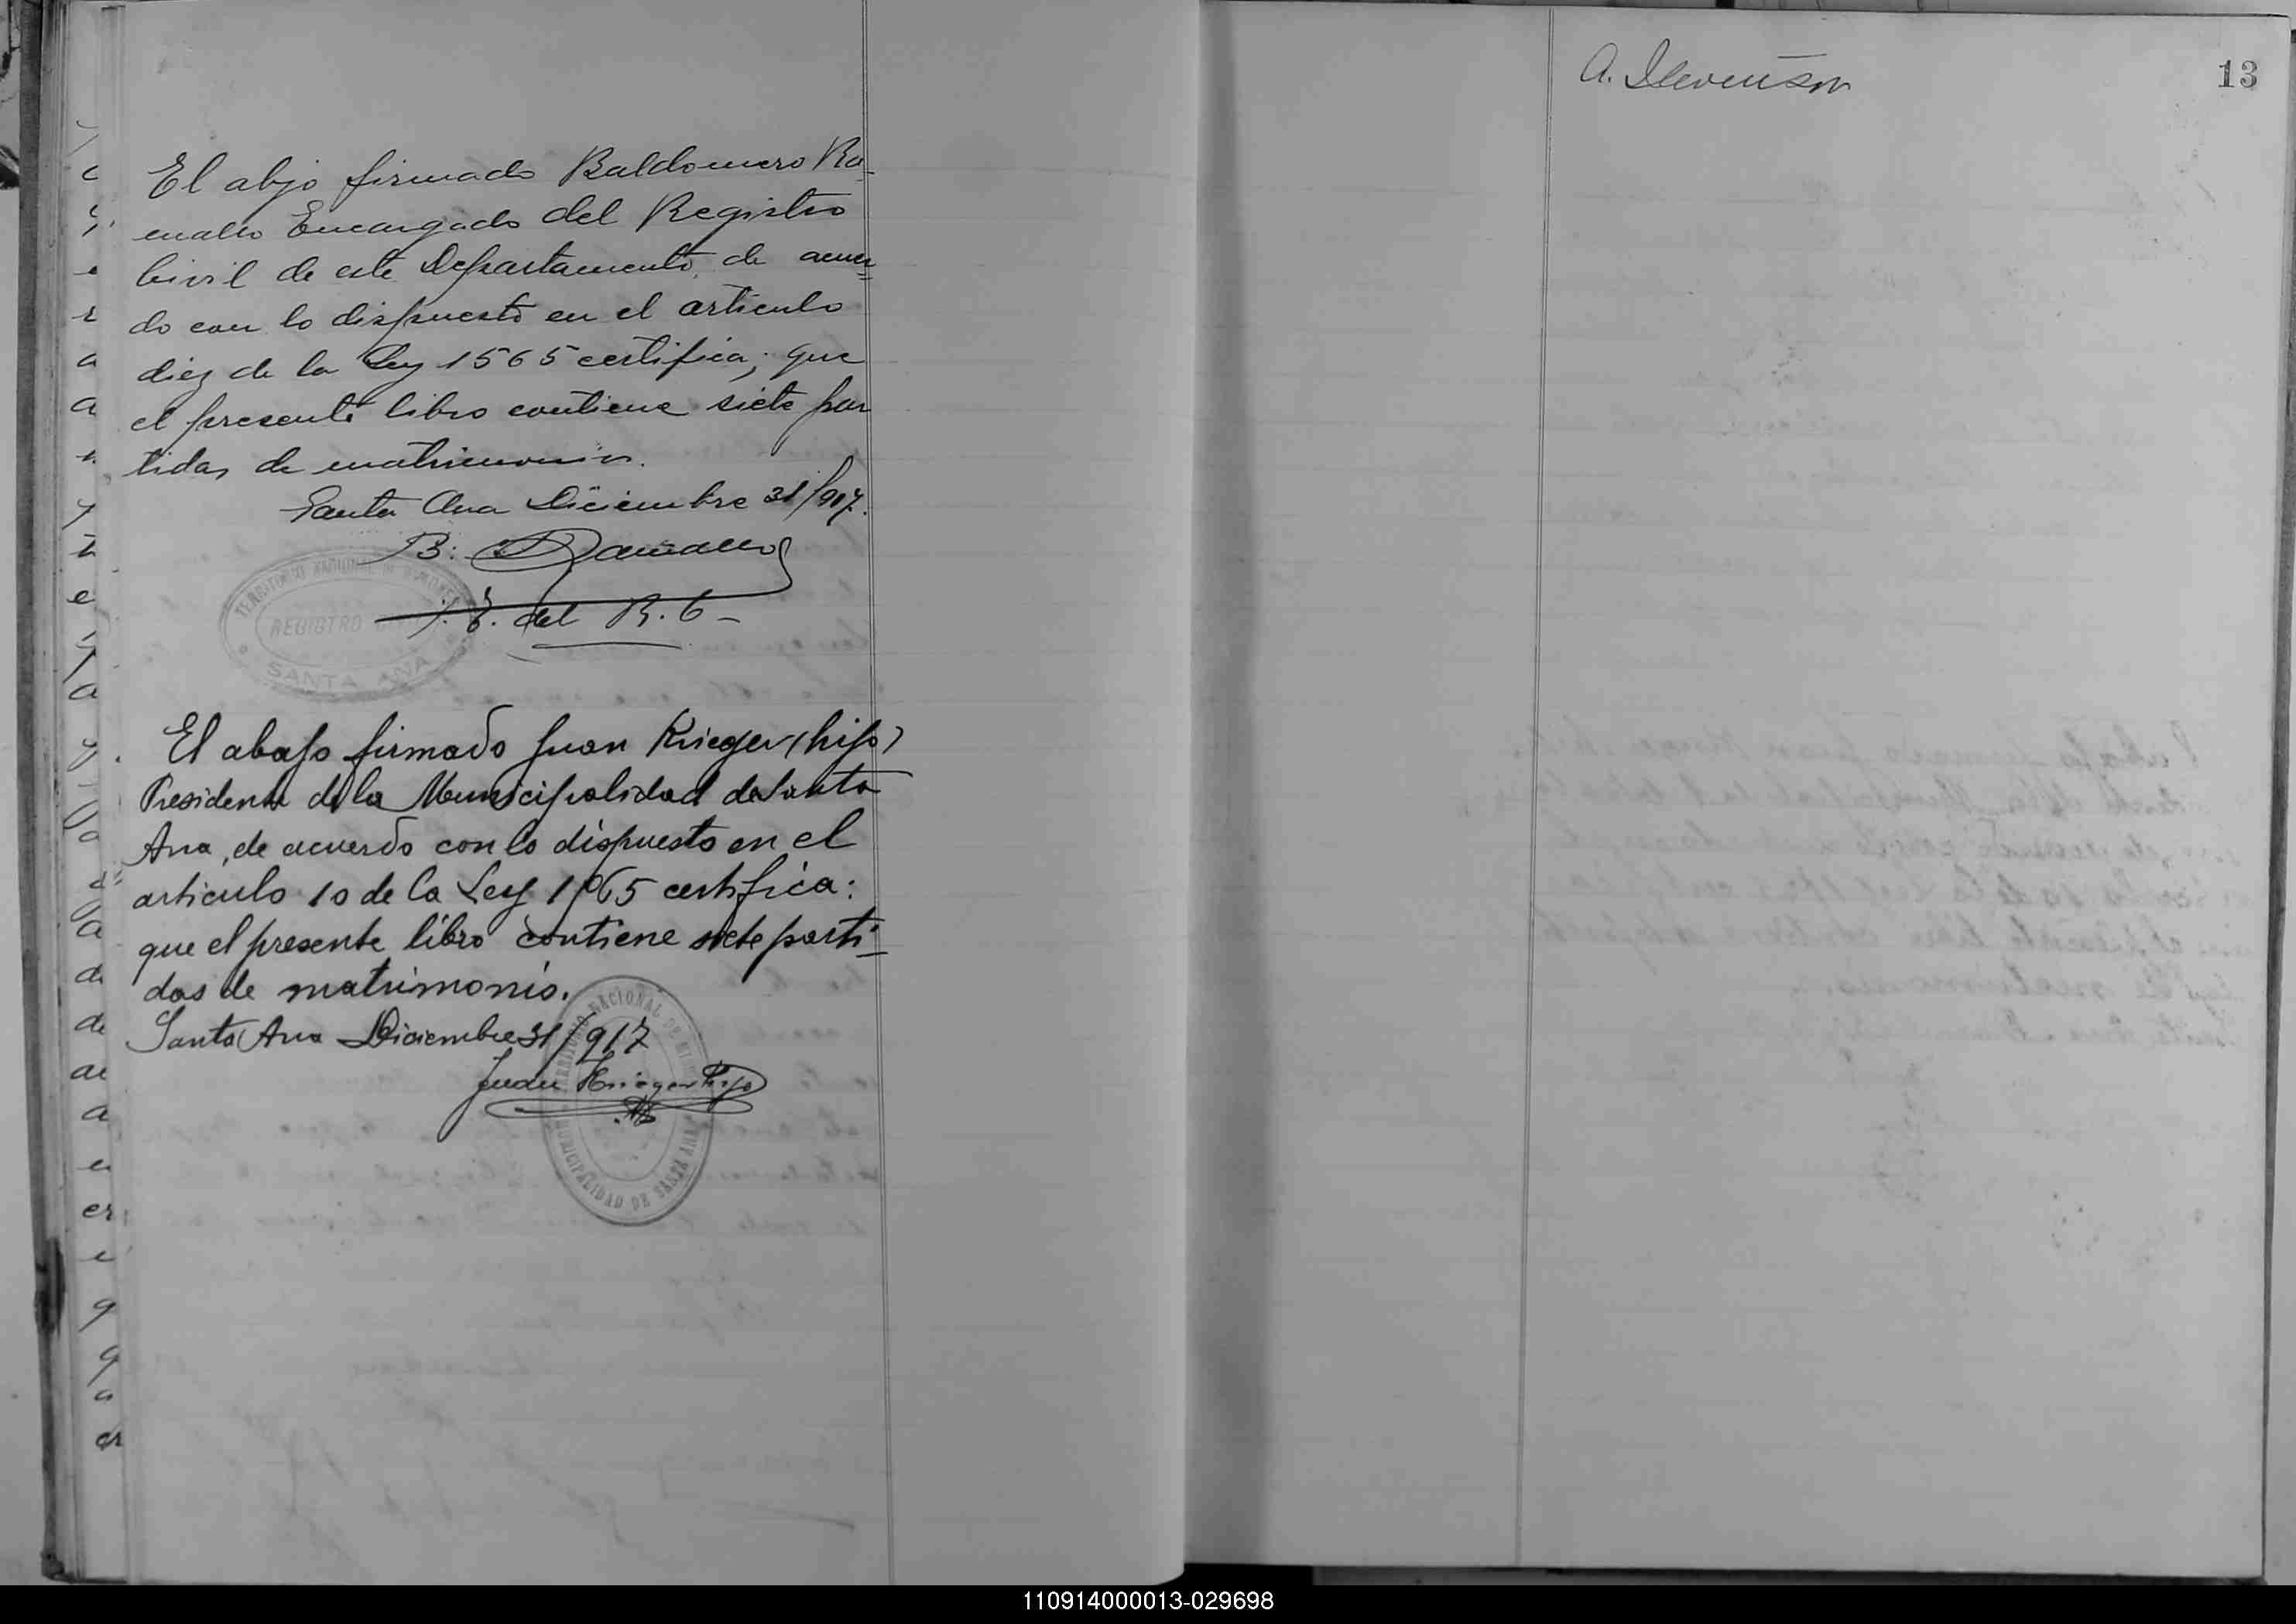 El abjo firmado Baldomero Ra-
mallo Encargado del Registro
Civil de este Departamento, de acuer=
do con lo dispuesto en el articulo
diez de la Ley 1565 certifica; que
el presente libro contiene siete par
tidas de matrimonios.
Santa Ana Diciembre 31/917.
B. Ramallo
E. del R. C-
TERRITORIO NACIONAL DE MISIONES
REGISTRO CIVIL
SANTA ANA
El abajo firmado Juan Krieger (hijo)
Presidente de la Municipalidad de Santa
Ana, de acuerdo con lo dispuesto en el
articulo 10 de la Ley 1565 certifica:
que el presente libro contiene siete parti=
das de matrimonio.
Santa Ana Diciembre 31/917
Juan Krieger hijo
TERRITORIO NACIONAL DE MISIONES
MUNICIPALIDAD DE SANTA ANA
A. Stevenson
13
110914000013-029698